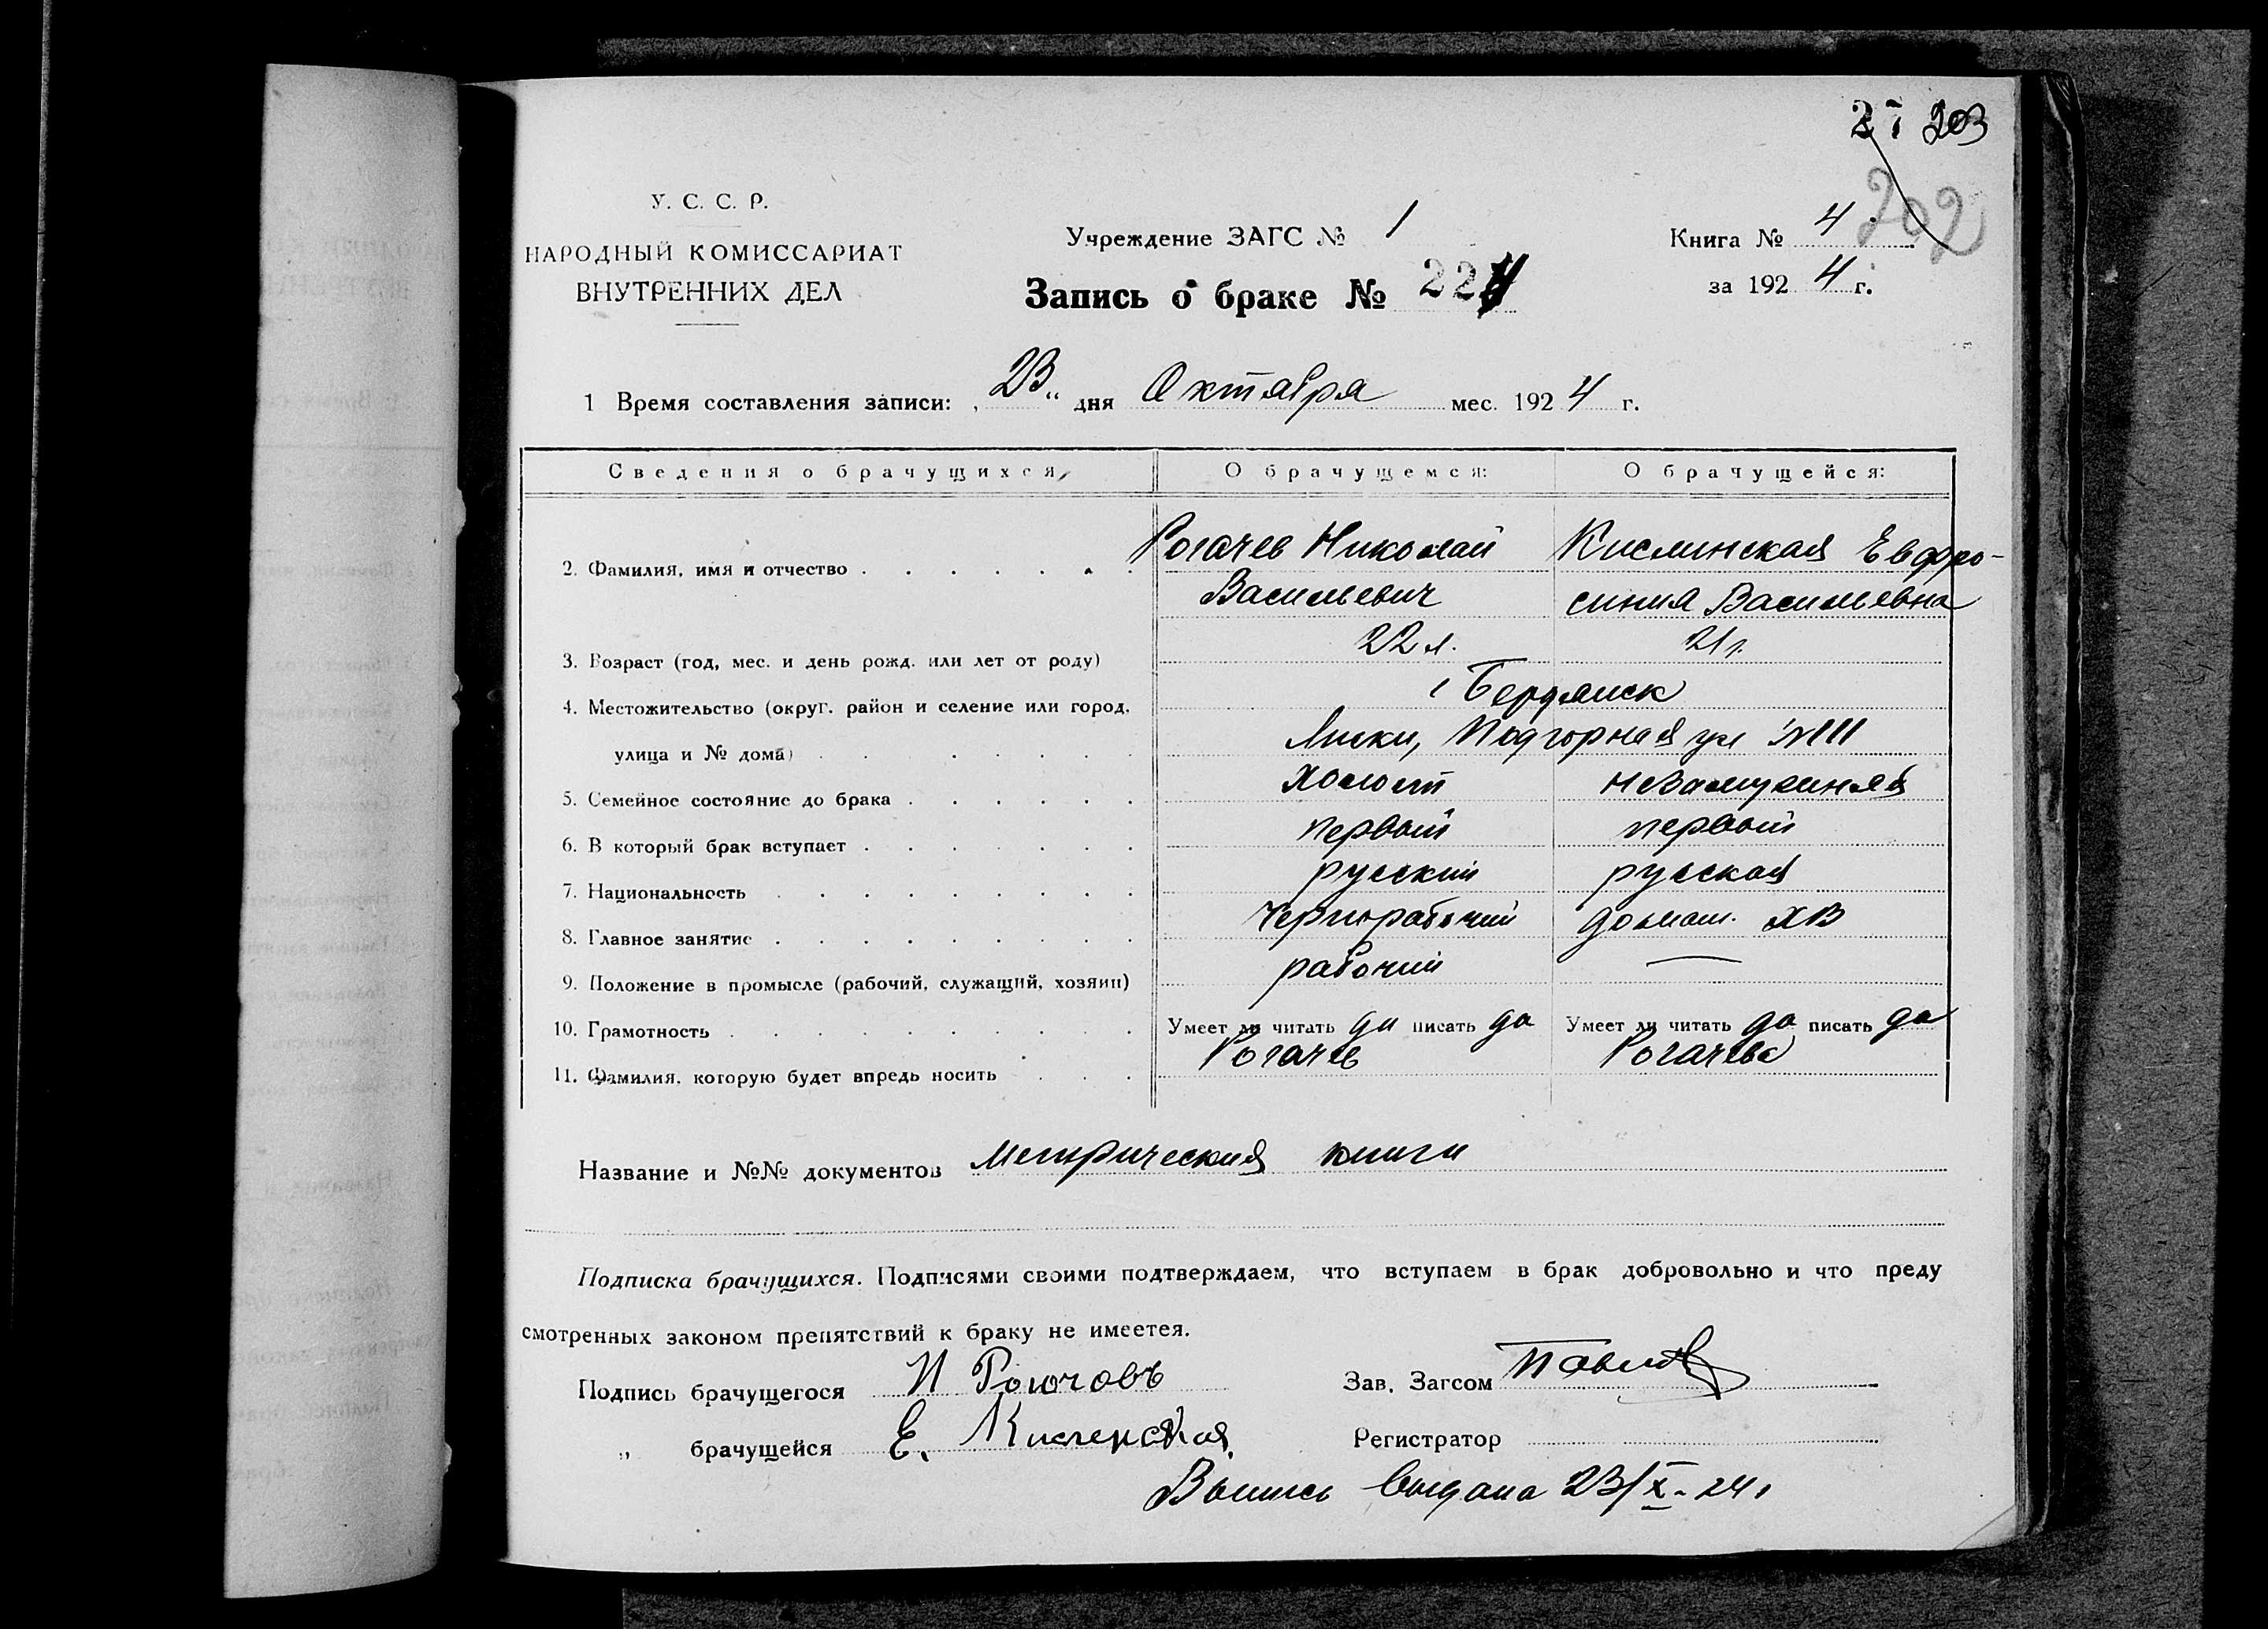 203
202
У. С. С. Р.
НАРОДНЫЙ КОМИССАРИАТ
ВНУТРЕННИХ ДЕЛ
Учреждение ЗАГС № 1
Запись о браке № 224
Книга № 4
за 1924 г.
1 Время составления записи: „23“ дня Октября мес. 1924 г.
Сведения о брачущихся
О брачущемся:
О брачущейся:
2. Фамилия, имя и отчество
Рогачев Николай
Васильевич
Кислинская Евфро-
синия Васильевна
3. Возраст (год, мес. и день рожд. или лет от роду)
22 л.
21 г.
4. Местожительство (округ. район и селение или город,
улица и № дома)
г Бердянск
Лиски, Подгорная ул №111
5. Семейное состояние до брака
холост
незамужняя
6. В который брак вступает
первый
первый
7. Национальность
русский
русская
8. Главное занятие
Чернорабочий
домаш. хв
9. Положение в промысле (рабочий, служащий, хозяин)
рабочий
—
10. Грамотность
Умеет ли читать да писать да
Умеет ли читать да писать да
11. Фамилия, которую будет впредь носить
Рогачев
Рогачева
Название и №№ документов Метрическия книги
Подписка брачущихся. Подписями своими подтверждаем, что вступаем в брак добровольно и что преду
смотренных законом препятствий к браку не имеетея.
Подпись брачущегося Н Рогачовъ
Зав. Загсом
„ брачущейся Е. Кисленская.
Регистратор
Выпись выдана 23/X-24г